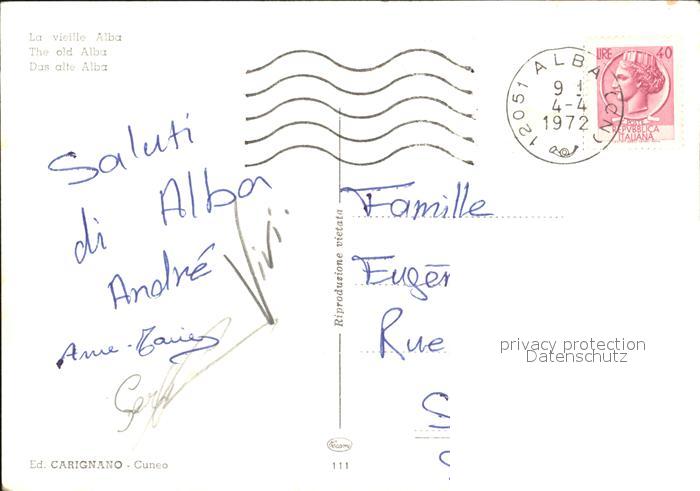 La vieille Alba
The old Alba
Das alte Alba
12051 ALBA (CN)
9 1
4-4
1972
LIRE 40
POSTE
REPVBBLICA
ITALIANA
Saluti
di Alba
André
Vivi.
Anne-Marie
Reproduzione vietata
Famille
Eugèn
Rue
S
privacy protection
Datenschutz
Ed. CARIGNANO - Cuneo
111